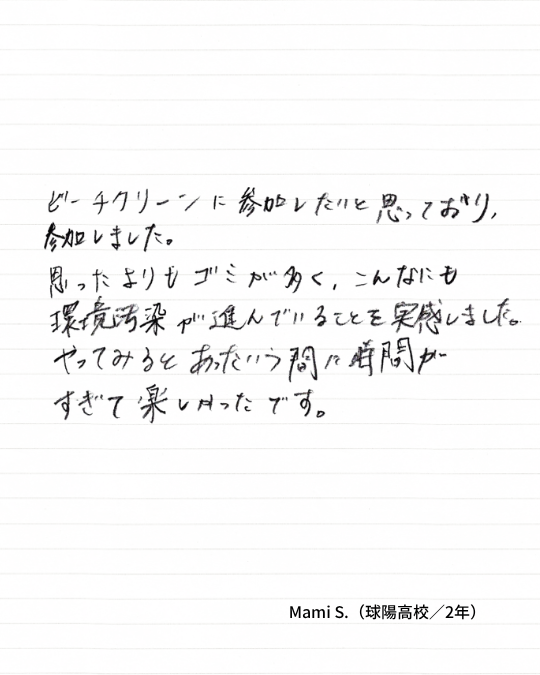 ビーチクリーンに参加したいと思っており、
参加しました。
思ったよりもゴミが多く、こんなにも
環境汚染が進んでいることを実感しました。
やってみるとあったいう間に時間が
すぎて楽しかったです。
Mami S.（球陽高校／2年）